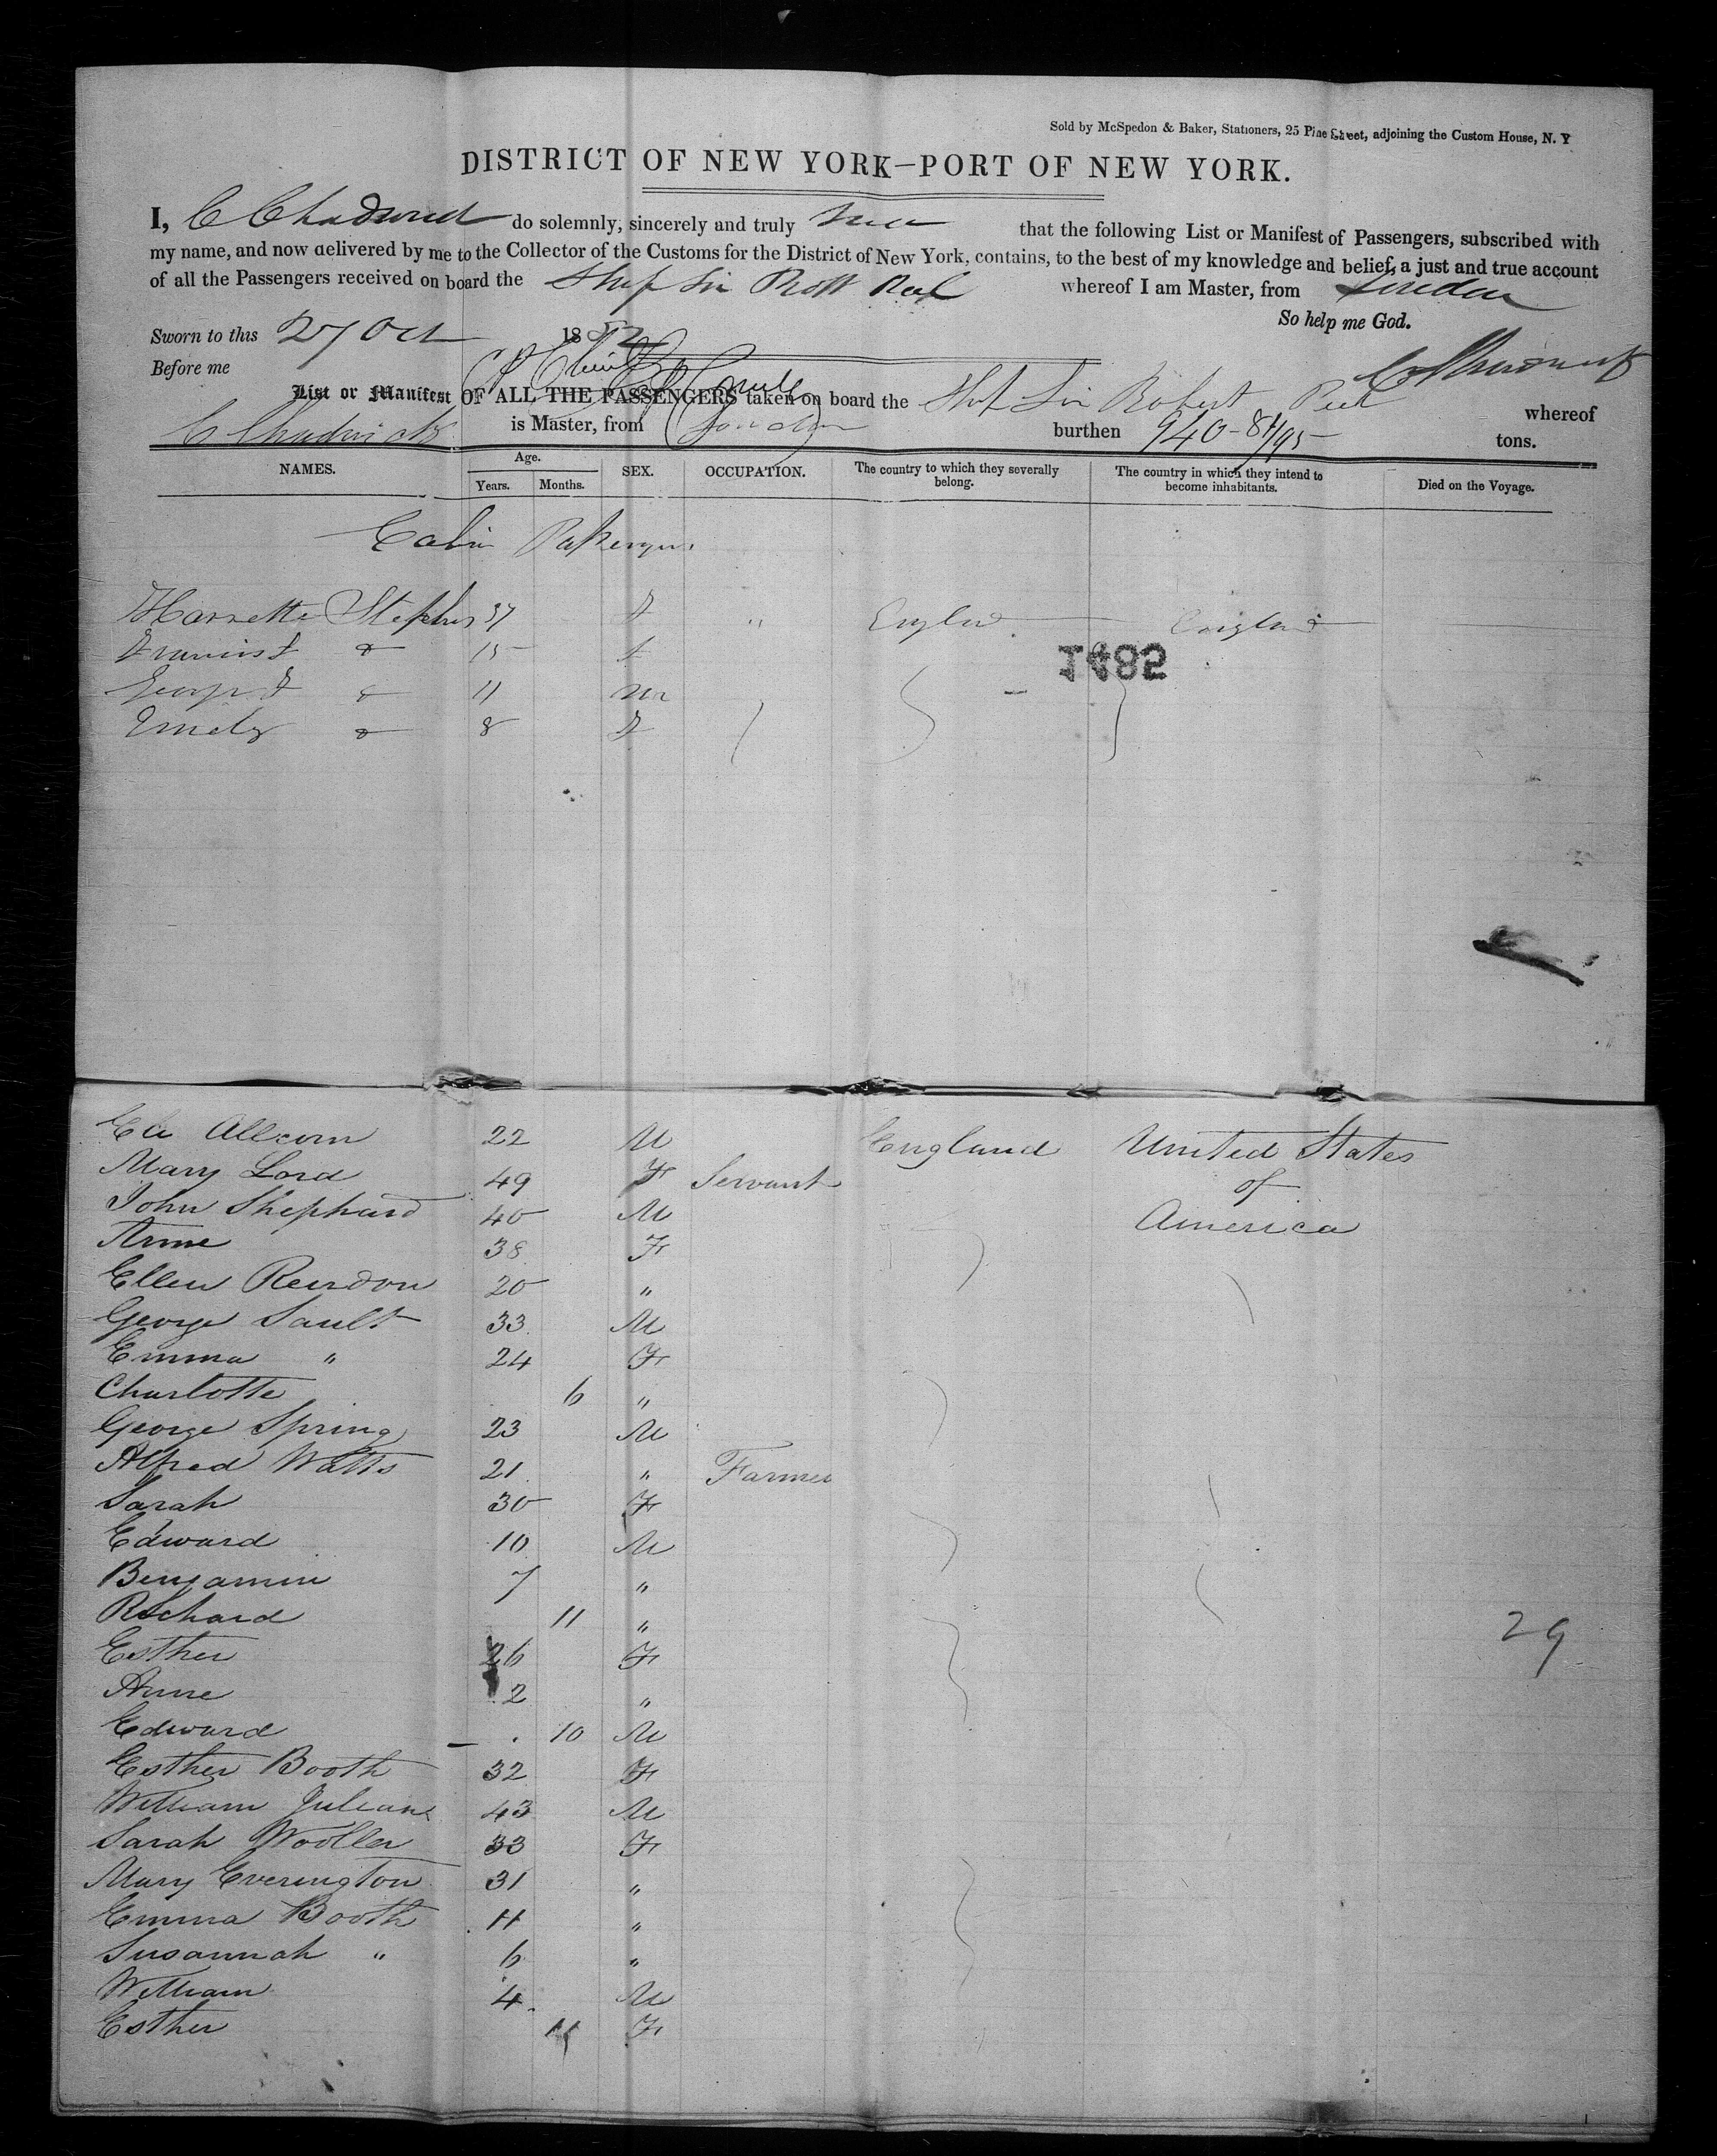 Sold by McSpedon & Baker, Stationers, 25 Pine Street, adjoining the Custom House, N. Y
DISTRICT OF NEW YORK—PORT OF NEW YORK.
I, C Chadwick do solemnly, sincerely and truly swear that the following List or Manifest of Passengers, subscribed with
my name, and now delivered by me to the Collector of the Customs for the District of New York, contains, to the best of my knowledge and belief, a just and true account
of all the Passengers received on board the Ship Sir Robt Peel whereof I am Master, from London
So help me God.
Sworn to this 27 Oct 1852
Before me
C Chadwick
List or Manifest OF ALL THE PASSENGERS taken on board the Ship Sir Robert Peel whereof
C Chadwick is Master, from London burthen 940-84/95 tons.
NAMES. Age. Years. Months. SEX. OCCUPATION. The country to which they severally belong. The country in which they intend to become inhabitants. Died on the Voyage.
Cabin Passengers
Harrette Stephens 37 F " England England
Francis F do 15 F
1482
George F do 11 m
Emely do 8 F
Ed Allcorn 22 M England United States
Mary Lord 49 F Servant of
John Shephard 40 M America
Anne 38 F
Ellen Reardon 20 "
George Sault 33 M
Emma " 24 F
Charlotte 6 "
George Spring 23 M
Alfred Watts 21 " Farmer
Sarah 30 F
Edward 10 M
Benjamin 7 "
Richard 11 "
29
Esther 26 F
Anne 2 "
Edward 10 M
Esther Booth 32 F
William Juleans 43 M
Sarah Wooller 33 F
Mary Everington 31 "
Emma Booth 11 "
Susannah " 6 "
William 4 M
Esther 11 F